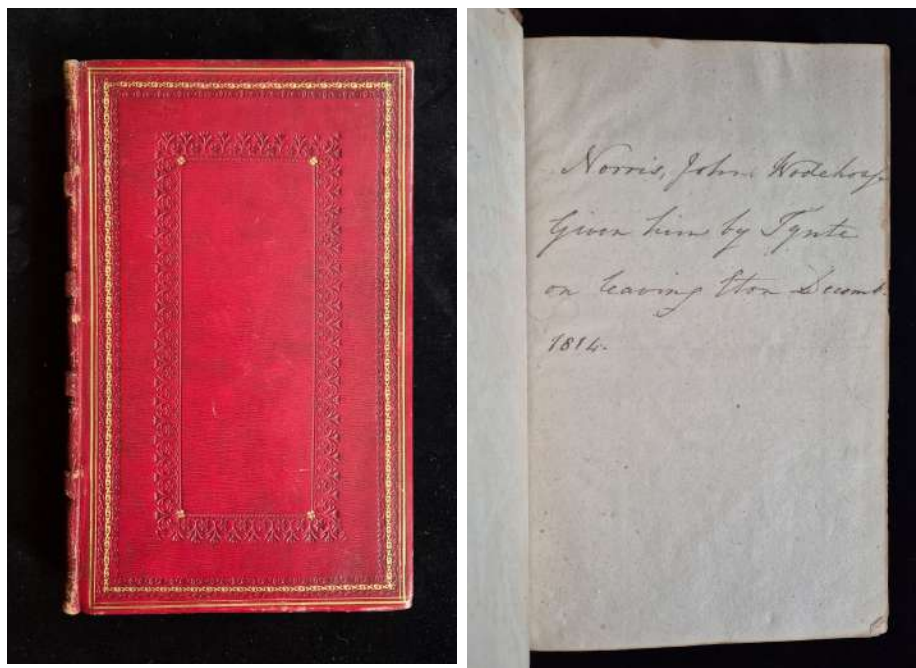 Norris, John Wodehouse
Given him by Tynte
on leaving Eton Decemb.
1814.